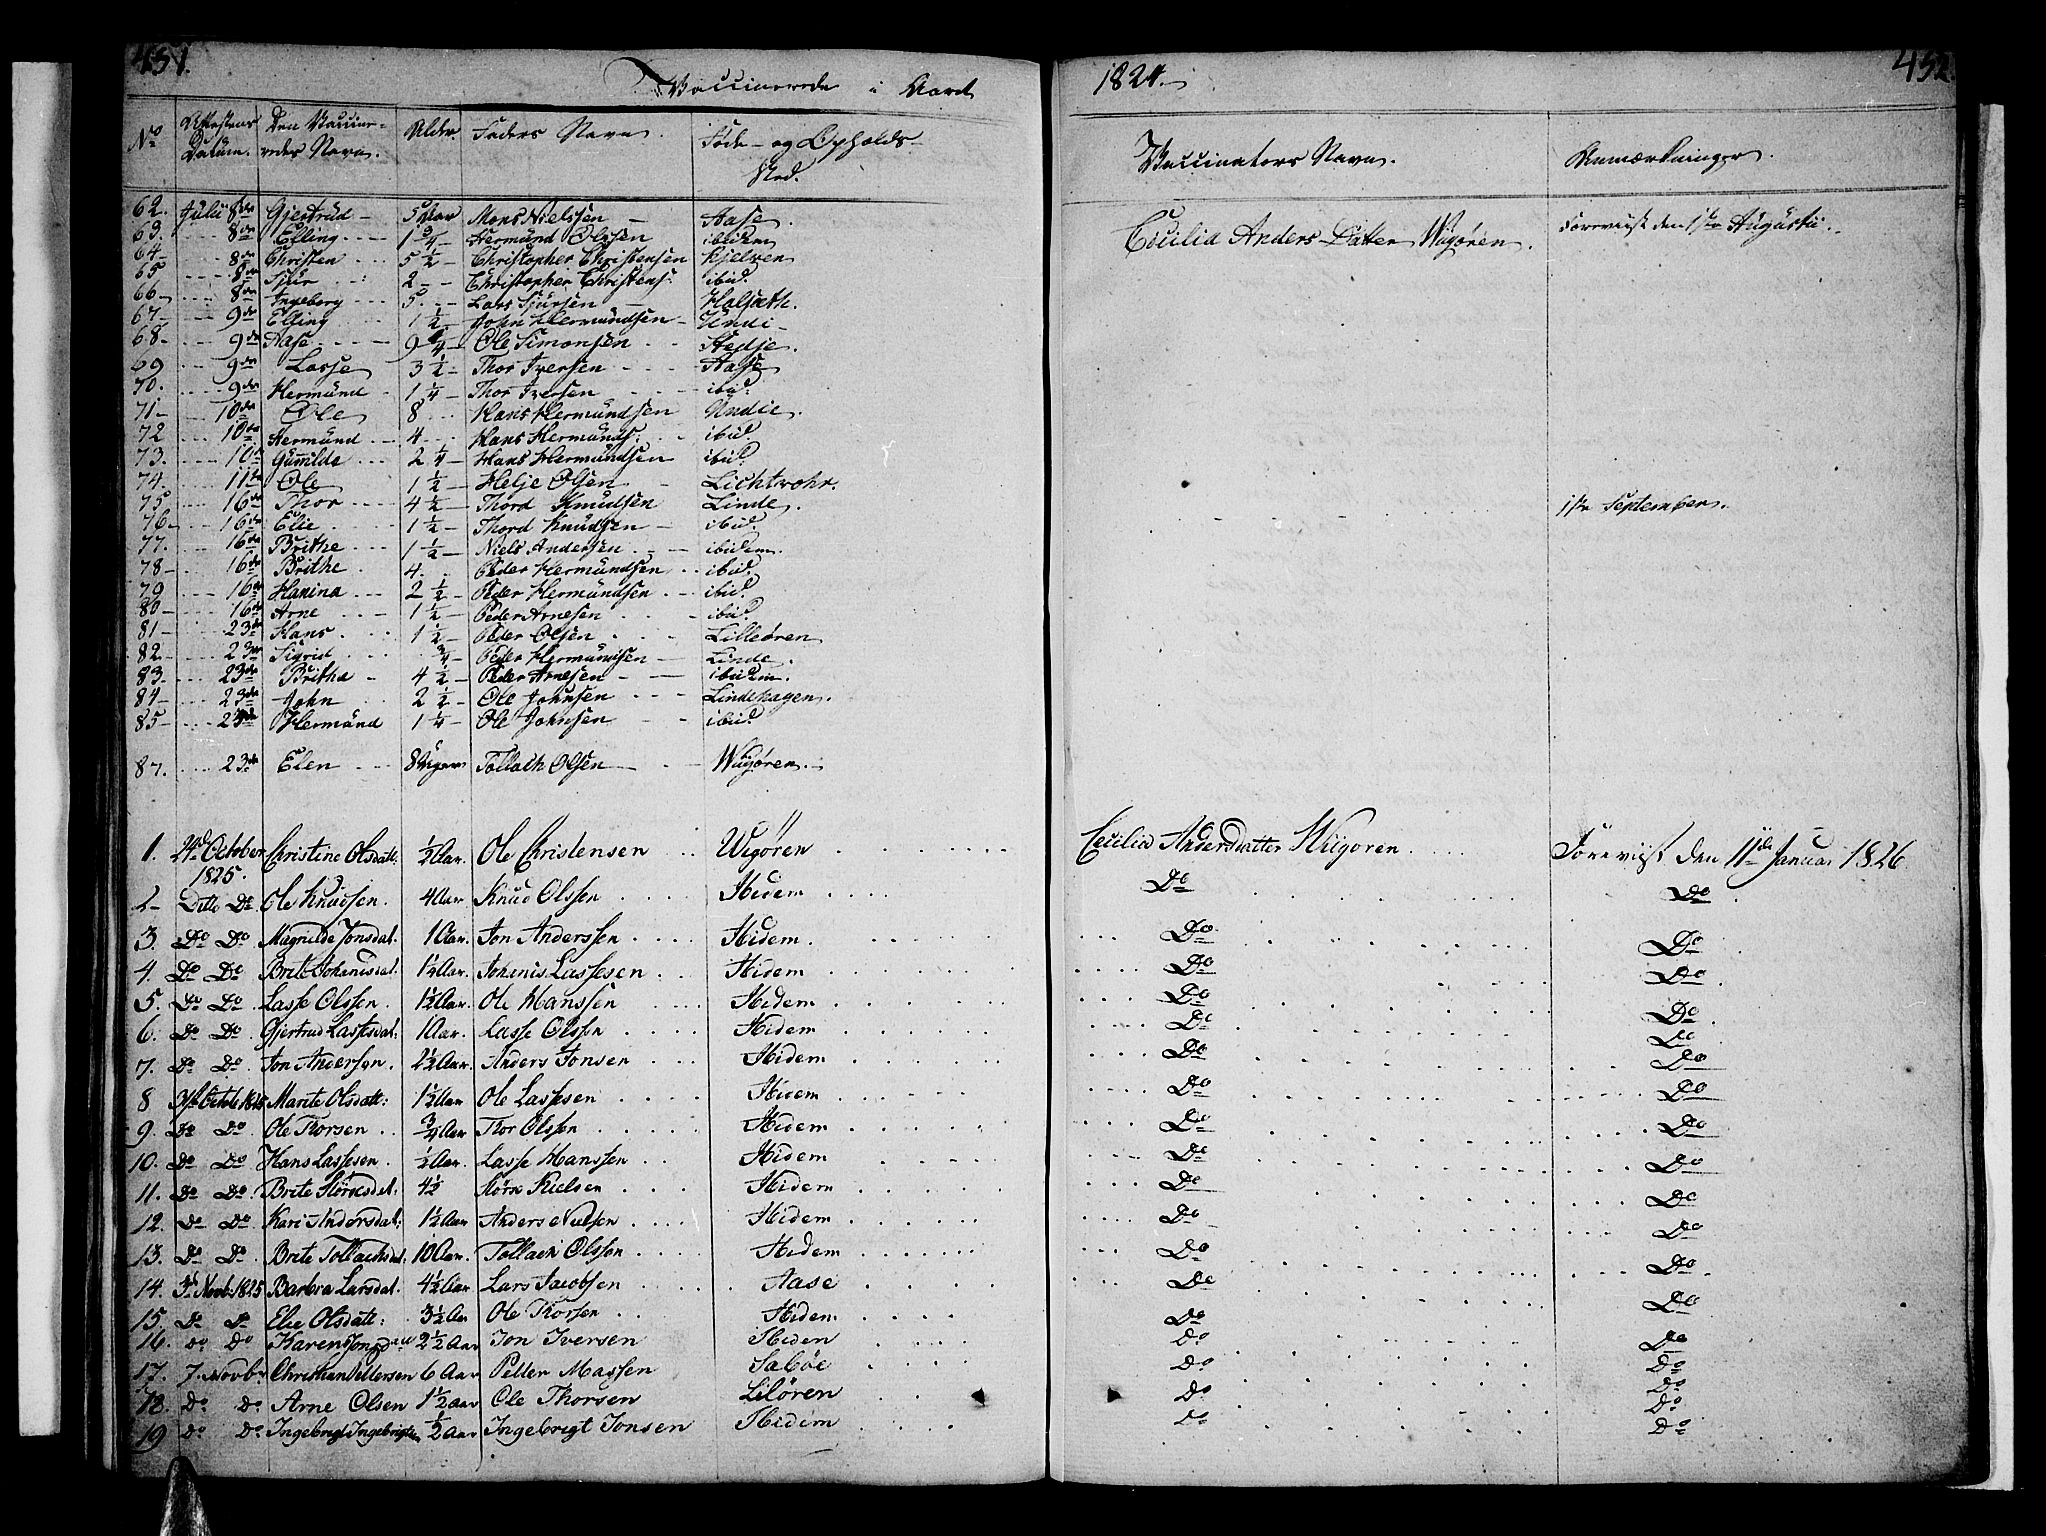 451.
Vaccinerede i Aaret
1824.
452.
No Attestens Datum. Den Vaccineredes Navn. Alder Faders Navn. Føde- og Opholds-Sted. Vaccinators Navn. Anmærkninger.
62. Julii 8de Gjertrud 5 Aar Mons Nielssen Aase. Cecilia Anders-Datter Wigøren. Foreviist den 1ste Augustii.
63. 8de Elling 1 3/4 Hermund Olssen ibidem
64 8de Christen 5 1/2 Christopher Christensen Kjelven
65 8de Sjur 2 Christopher Christens: ibid.
66 8de Ingeborg 5 Lars Sjursen Halsæth.
67 9de Elling 1 1/2 John Hermundsen Undi
68 9de Aase 9 1/4 Ole Simonsen Stedje.
69 9de Lasse 3 1/2 Thor Iversen Aase
70. 9de Hermund 1 1/4 Thor Iversen ibid.
71 10de Ole 8 Hans Hermundsen Undie.
72 10de Hermund 4 Hans Hermunds: ibid.
73. 10de Gunnilde 2 1/4 Hans Hermundsen ibid.
74. 11te Ole 1 1/2 Helje Olsen Lichtvohr.
75 16de Thor 4 1/2 Thord Knudsen Linde. 1ste September.
76 16de Elie 1 1/2 Thord Knudsen ibid.
77. 16de Brithe 1 1/2 Niels Andersen ibidem.
78 16de Brithe 4 Peder Hermundsen ibid.
79 16de Hanina 2 1/2 Peder Hermundsen ibid.
80 16de Arne 1 1/2 Peder Arnesen ibid.
81 23de Hans 1 1/2 Peder Olsen Lilleøren
82 23de Sigrid 3/4 Peder Hermundsen Linde.
83 23de Britha 4 1/2 Peder Arnesen ibidem.
84 23de John 2 1/2 Ole Johnsen Lindehagen.
85 23de Hermund 1 1/4 Ole Johnsen ibid.
87. 23de Elen 8 Uger Tollach Olsen Wigøren.
1. 29de October 1825. Christine Olsdatt: 1/2 Aar. Ole Christensen Wigøren Cecilia Andersdatter Wiigøren. Foreviist den 11de Januar 1826.
2 Ditto Do. Ole Knudsen. 4 Aar Knud Olssen Ibidem Do Do
3. Do Do. Magnilde Jonsdat. 1 Aar. Jon Anderssen Ibidem. Do Do
4. Do Do. Brite Johanisdat. 1 1/2 Aar. Johanis Lassesen Ibidem Do Do
5. Do Do. Lasse Olssen. 1 1/2 Aar. Ole Hanssen Ibidem Do Do
6. Do Do. Gjertrud Lassesdat: 1 Aar. Lasse Olssen Ibidem Do Do
7. Do Do. Jon Anderson. 2 1/2 Aar Anders Jonsen Ibidem Do Do
8 31te Octob 1825 Marite Olsdatt: 1 1/2 Aar Ole Lassesen Ibidem Do Do
9. Do Do. Ole Thorsen 3/4 Aar Thor Olsson Ibidem Do Do
10. Do Do Hans Lassesen. 1/2 Aar. Lasse Hanssen Ibidem Do Do
11. Do Do. Brite Størcksdat: 4 1/2 Størk Nielsen Ibidem Do Do
12. Do Do. Kari Andersdat: 1 1/2 Aar Anders Nielsen Ibidem Do Do
13. Do Do. Brite Tollachsdat: 10 Aar. Tollach Olsson Ibidem Do Do
14. 3de Novb: 1825 Barbra Larsdat. 4 1/2 Aar Lars Jacobsen Aase Do Do
15. Do Do Elie Olsdatt: 3 1/2 Aar Ole Thorsen Ibidem Do Do
16. Do Do Karen Jonsdatt 2 1/2 Aar Jon Iversen Ibidem Do Do
17. 7. Novbr Christian Pettersen 6 Aar Petter Massen Sabøe Do Do
18. Do. Do. Arne Olsen 1 1/2 aar Ole Thorsen Liløren Do Do
19 Do. Do. Ingebrigt Ingebrigtsen 1/2 aar Ingebrigt Jonsen Ibidem Do Do